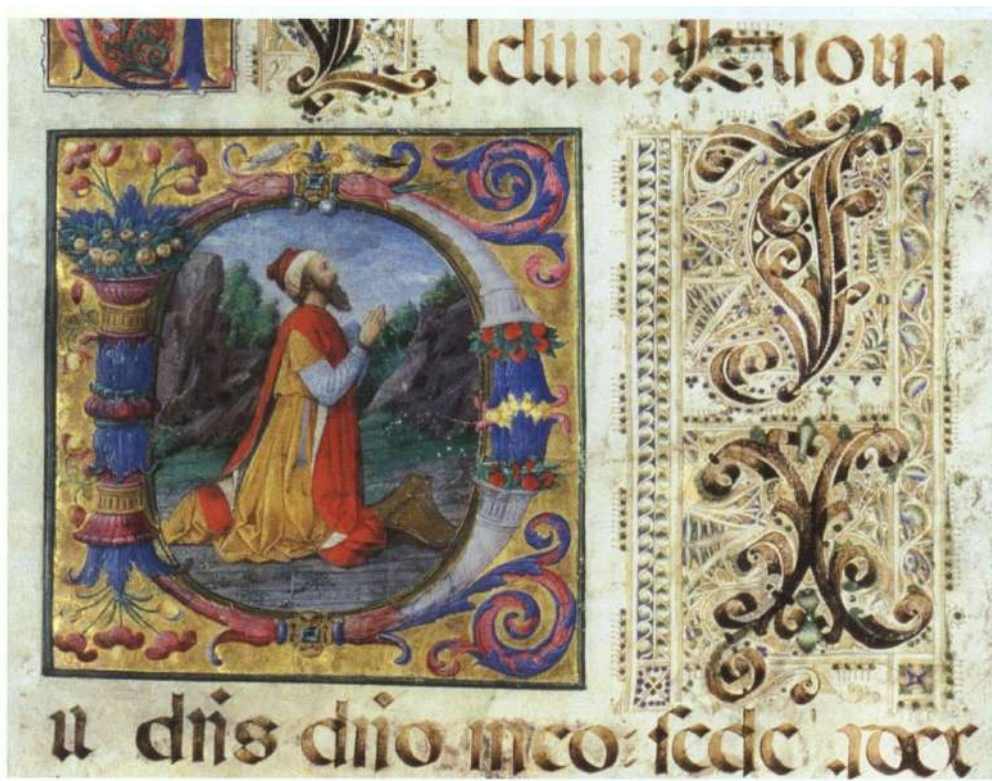 A L leluia. Euoua.
D I
X
it dñs dño meo: sede a dex